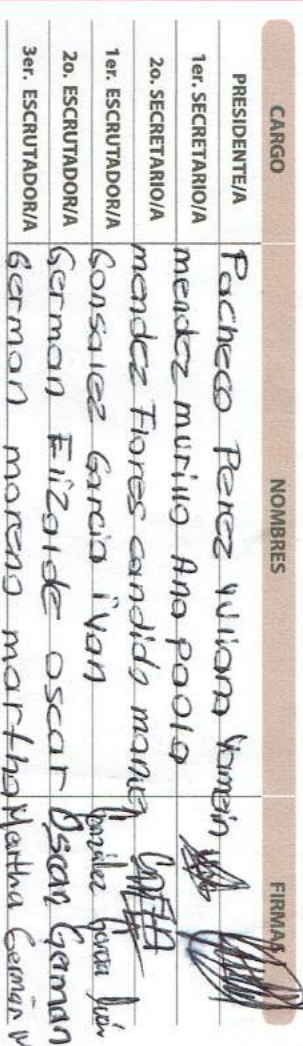 CARGO NOMBRES FIRMAS
PRESIDENTE/A Pacheco Perez Yuliana Yamein
1er. SECRETARIO/A mendez murillo Ana paola
2o. SECRETARIO/A mendez Flores candido manuel
1er. ESCRUTADOR/A Gonsalez Garcia ivan González García Iván
2o. ESCRUTADOR/A German Elizalde oscar Oscar German
3er. ESCRUTADOR/A German moreno martha Martha German M